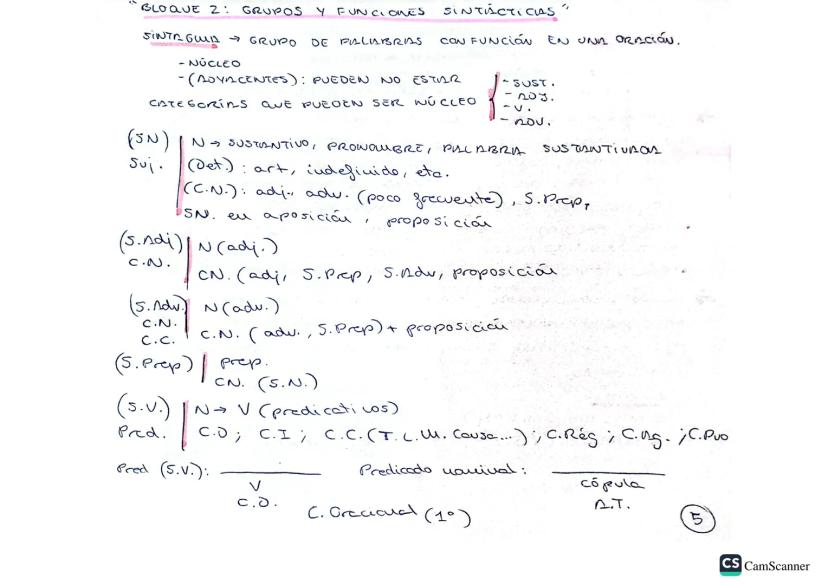 "BLOQUE 2: GRUPOS Y FUNCIONES SINTÁCTICAS"
SINTAGMA → GRUPO DE PALABRAS CON FUNCIÓN EN UNA ORACIÓN.
- NÚCLEO
- (ADYACENTES): PUEDEN NO ESTAR
CATEGORÍAS QUE PUEDEN SER NÚCLEO
- SUST.
- ADJ.
- V.
- ADV.
(SN) N → SUSTANTIVO, PRONOMBRE, PALABRA SUSTANTIVADA
Suj. (Det.): art, indefinido, etc.
(C.N.): adj., adv. (poco frecuente), S.Prep,
SN. en aposición, proposición
(S.Adj) N (adj.)
C.N. CN. (adj, S.Prep, S.Adv, proposición
(S.Adv.) N (adv.)
C.N.
C.C. C.N. (adv., S.Prep) + proposición
(S.Prep) prep.
CN. (S.N.)
(S.V.) N → V (predicativos)
Pred. C.D; C.I; C.C. (T.L.M. Causa...); C.Rég; C.Ag.; C.Pvo
Pred (S.V.): Predicado nominal:
V cópula
C.D. A.T.
C. Oracional (1º)
5
CS CamScanner